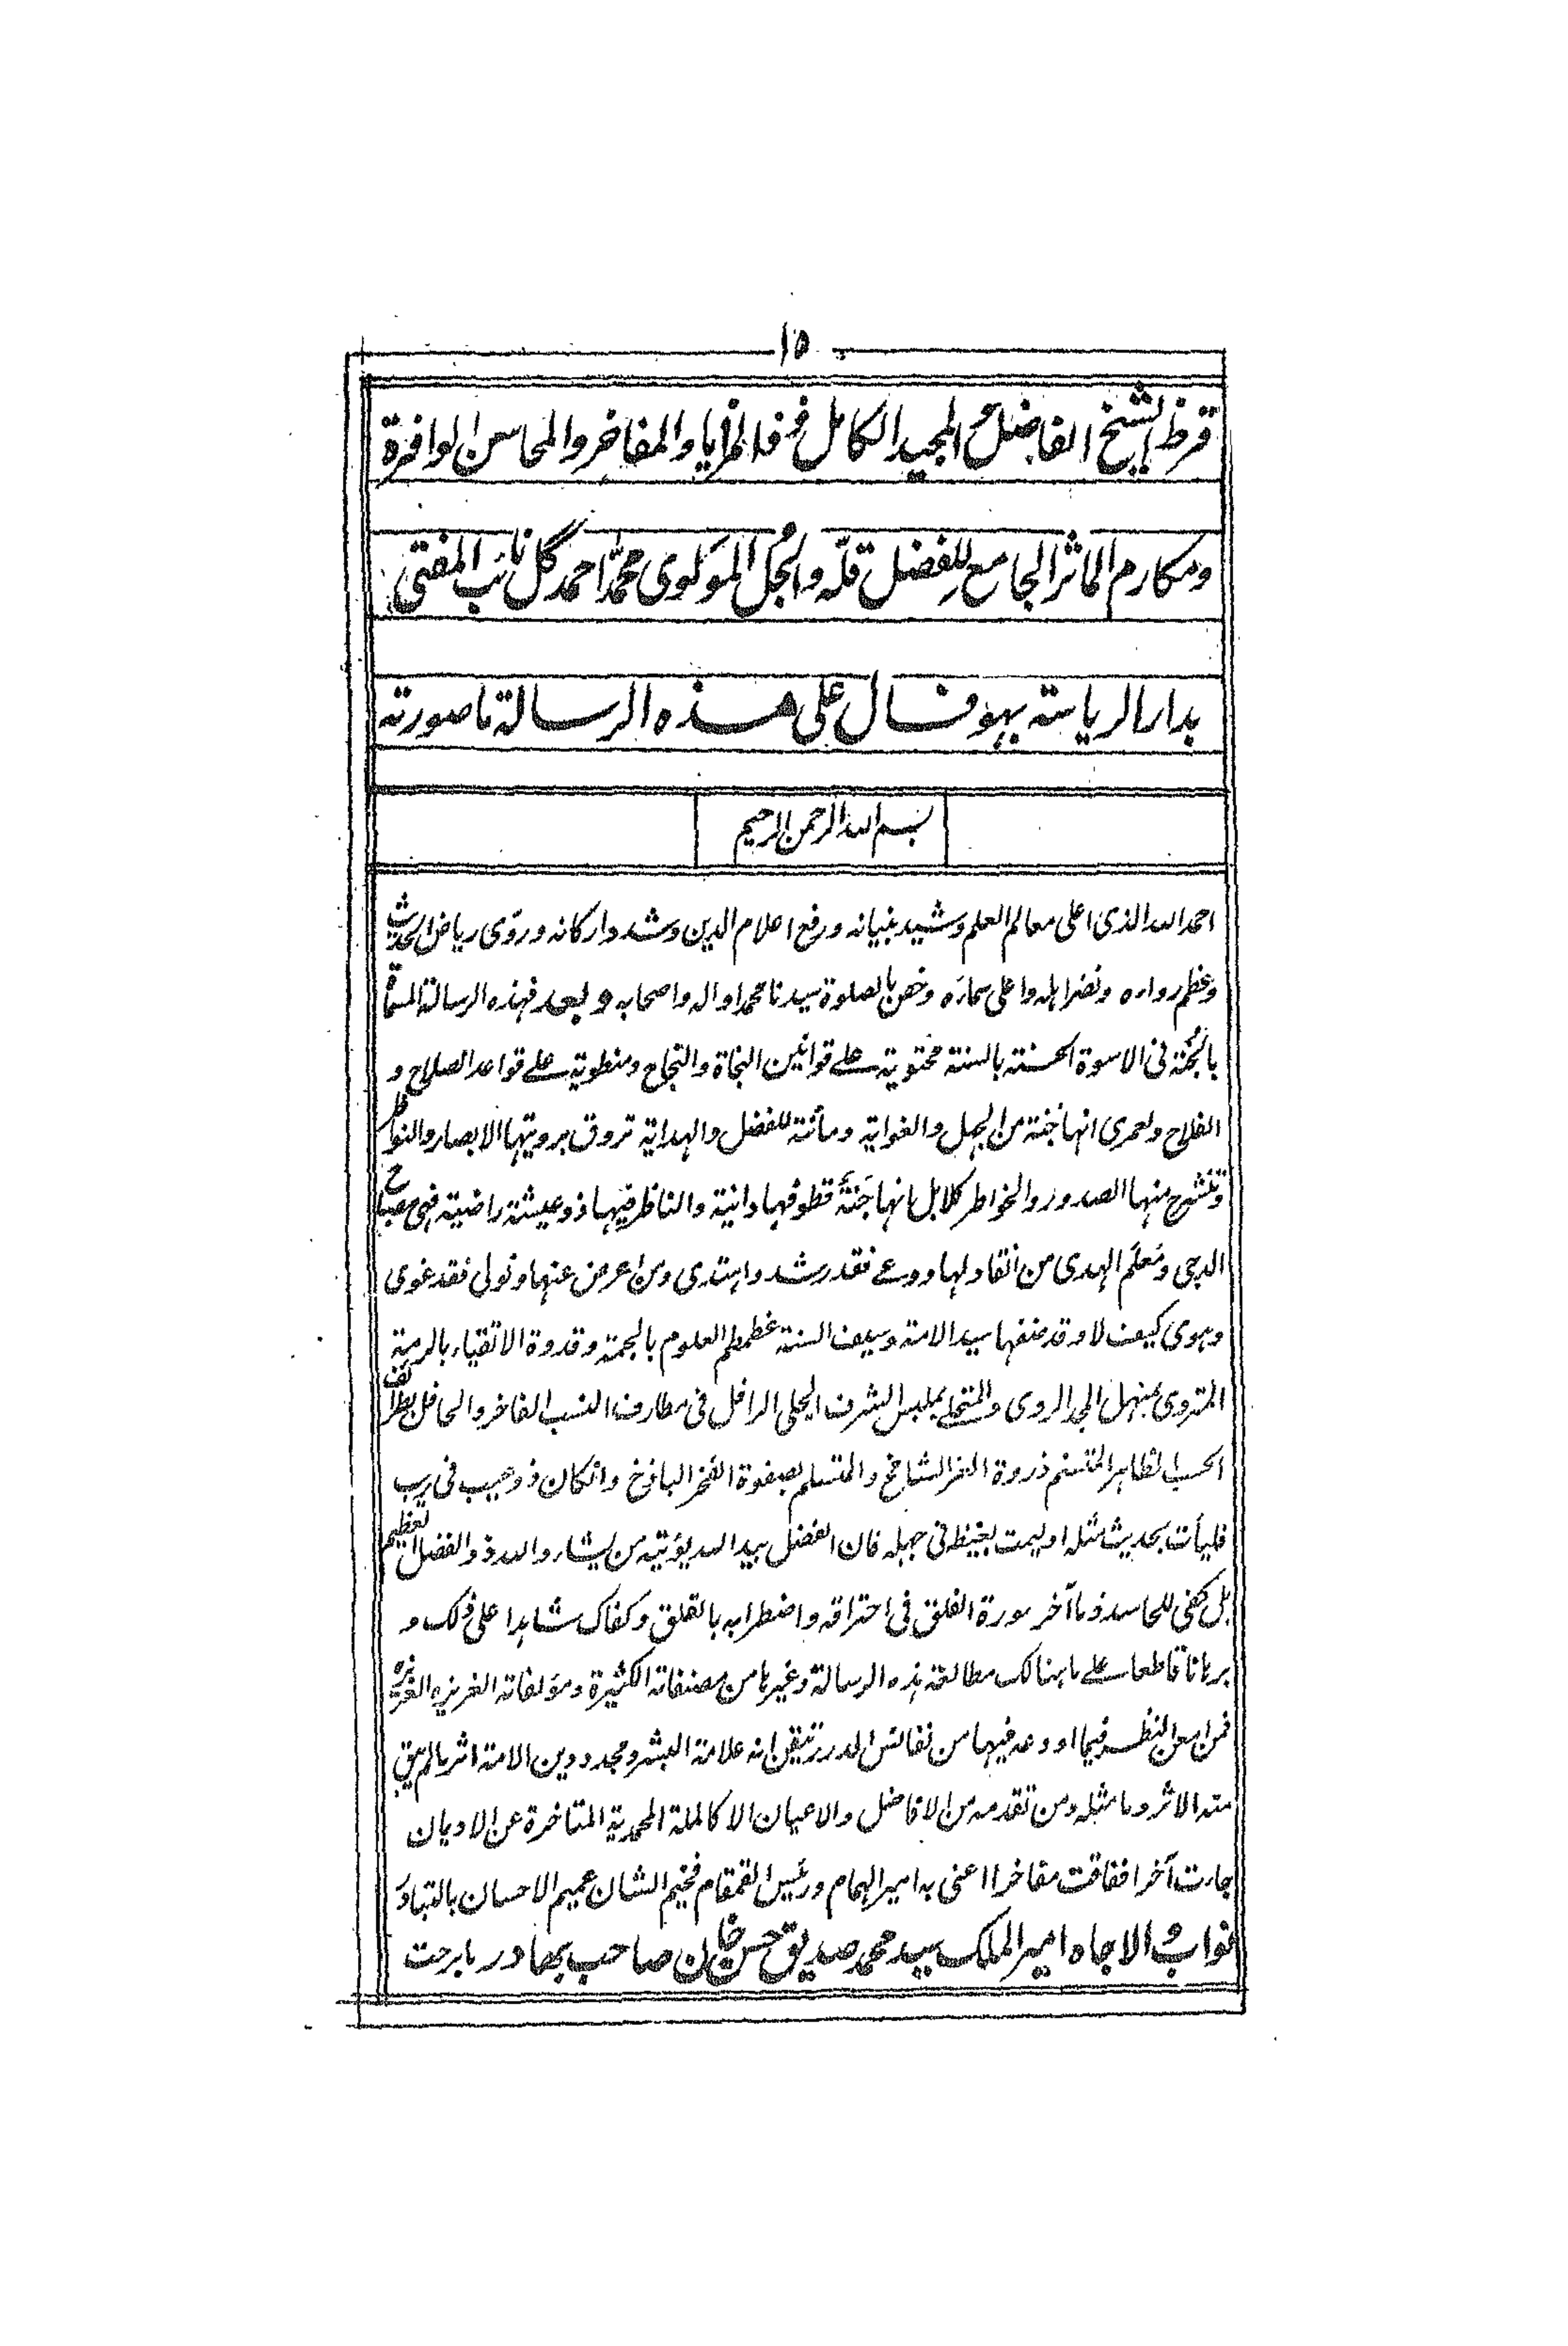 ١٥
قرظ الشيخ الفاضل المجيد الكامل ذو المزايا والمفاخر والمحاسن الوافرة
ومكارم الماثر الجامع للفضل قلّه والجُل المولوى محمّد احمد گل نائب المفتى
بدار الرياسة بهوفال على هذه الرسالة ما صورته
بسم الله الرحمن الرحيم
احمد الله الذى اعلى معالم العلم وشيد بنيانه ورفع اعلام الدين وشدد اركانه وروّى رياض الحديث
وعظم رواءه ونضر اهله واعلى سماءه وخص بالصلوة سيدنا محمدا واله واصحابه وبعد فهذه الرسالة المسماة
بالجُنّة فى الاسوة الحسنة بالسنة محتوية على قوانين النجاة والنجاح ومنطوية على قواعد الصلاح و
الفلاح ولعمرى انها جُنة من الجهل والغواية ومأنة للفضل والهداية تروق برويتها الابصار والنواظر
وتنشرح منها الصدور والخواطر كلا بل انها جَنّة قطوفها دانية والناظر فيها ذو عيشة راضية فهى مصباح
الدجى ومَعلَم الهدى من انقاد لها ووعى فقد رشد واهتدى ومن اعرض عنها وتولى فقد غوى
وهوى كيف لا وقد صنفها سيد الامة وسيف السنة غطمطم العلوم بالجمة وقدوة الاتقياء بالرمة
المتروى بمنهل المجد الروى والمتحلى بملبس الشرف الجلى الرافل فى مطارف النسب الفاخر والحافل بطرائف
الحسب الظاهر المتسنم ذروة العز الشامخ والمتسلم بصفوة الفخر الباذخ وانكان ذو حيب فى ريب
فليأت بحديث مثله او ليمت بغيظه فى جهله فان الفضل بيد الله يؤتيه من يشاء والله ذو الفضل العظيم
بل كفى للحاسد ذما آخر سورة الفلق فى احتراقه واضطرابه بالقلق وكفاك شاهدا على ذلك و
برهانا قاطعا على ما هنالك مطالعة هذه الرسالة وغيرها من مصنفاته الكثيرة ومؤلفاته العزيزه الغزيره
فمن امعن النظر فيما اودعه فيها من نفائس الدرر تيقن انه علامة البشر ومجدد دين الامة اثر ما لم يبق
منه الاثر وما مثله ومن تقدمه من الافاضل والاعيان الا كالملة المحمدية المتاخرة عن الاديان
جاءت آخرا ففاقت مفاخرا اعنى به امير الهمام ورئيس القمقام فخيم الشان عميم الاحسان بالتبادَ
نواب والاجاه امير الملك سيد محمد صديق حسن خان صاحب بهادر ما برحت